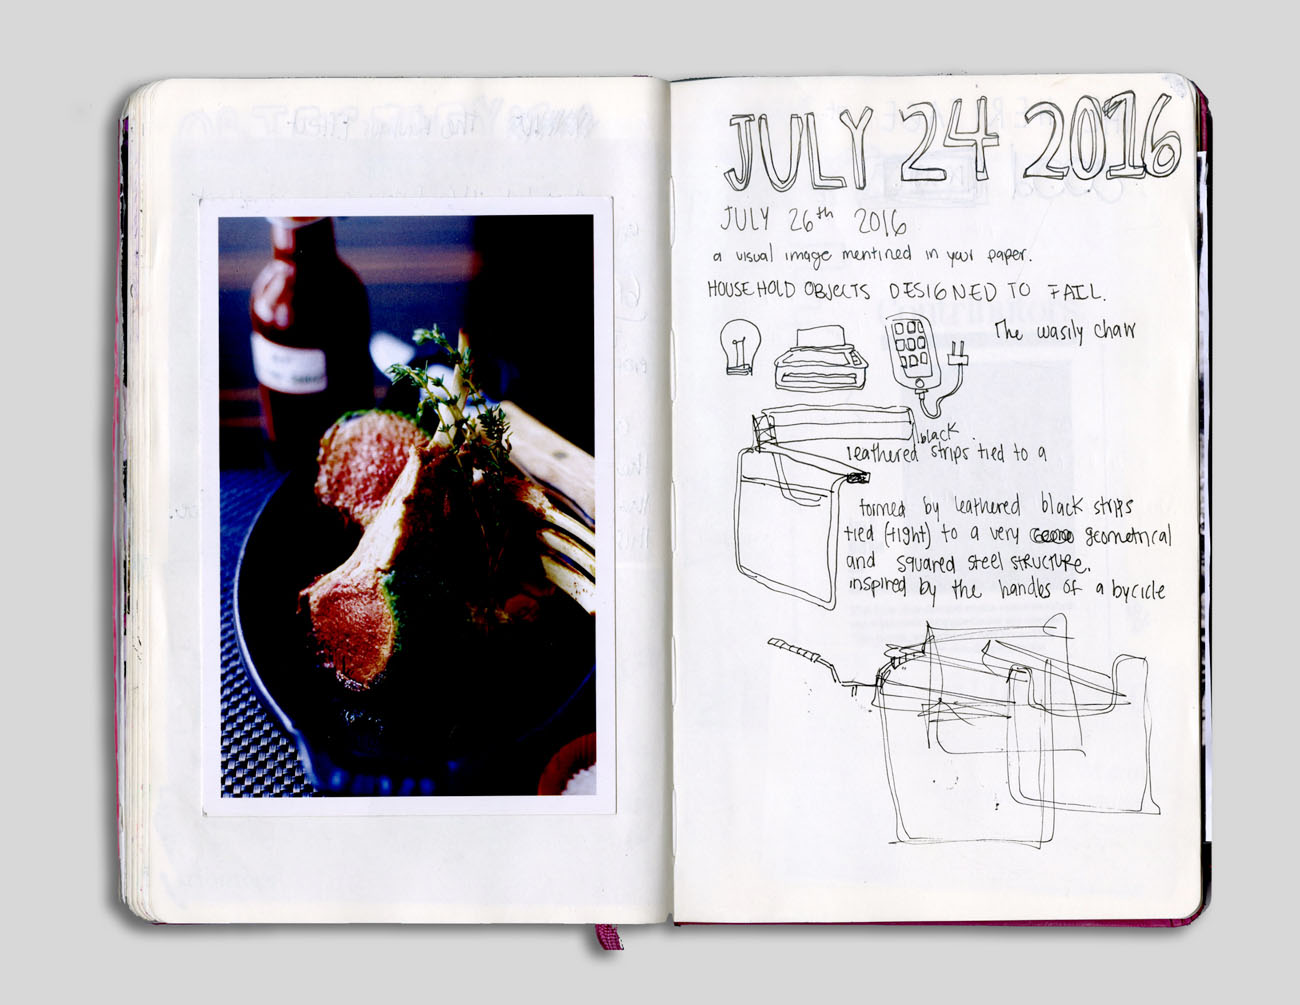 JULY 24 2016
JULY 26th 2016
a visual image mentined in your paper.
HOUSEHOLD OBJECTS DESIGNED TO FAIL.
The wasily chair
black
leathered strips tied to a
formed by leathered black strips
tied (tight) to a very geometrical
and squared steel structure.
inspired by the handles of a bycicle